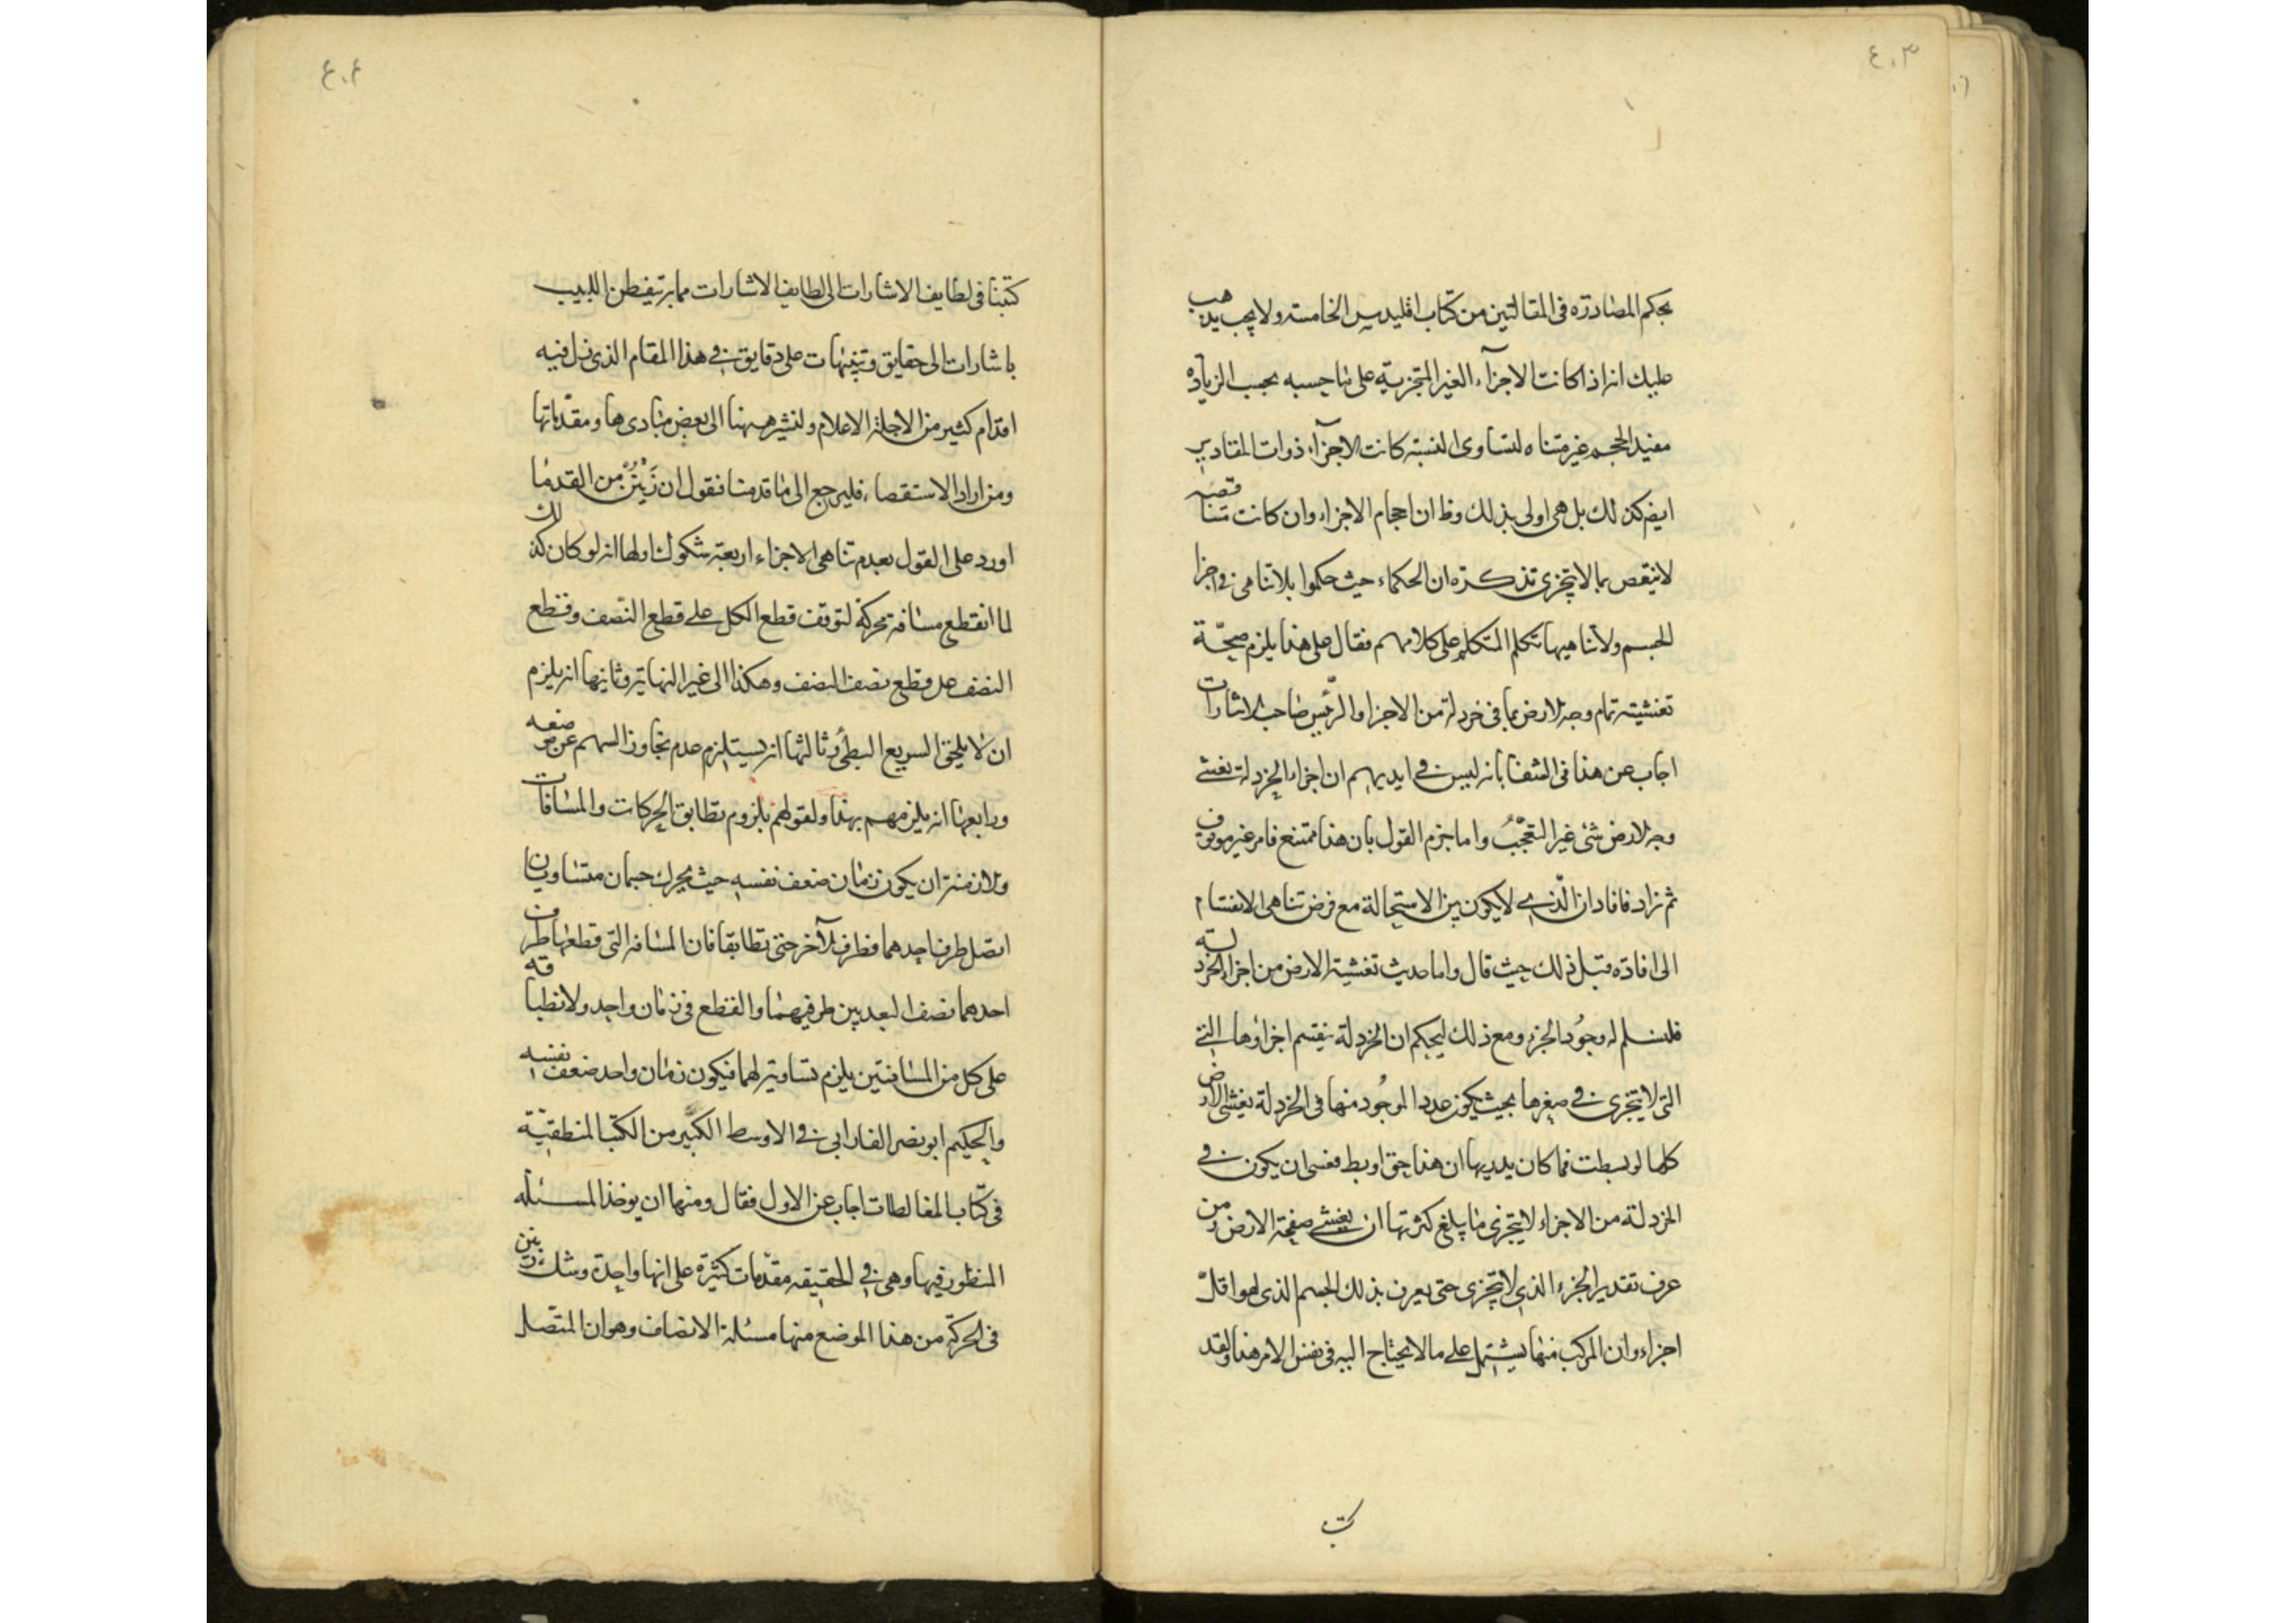 ٤٠٣
بحكم المصادرة فى المقالتين من كتاب اقليدس الخامسة ولا يجب يذهب
عليك انه اذا كانت الاجزآء الغير المتجزية على تناحسبه بحسب الزيادة
مفيد الحجم غير متناه لتساوى النسبة كانت الاجزآء ذوات المقادير
ايض كذلك بل هى اولى بذلك وظ ان احجام الاجزاء وان كانت متناقصة
لا ينقص بما لا يتجزى تذكرة ان الحكماء حيث حكموا بلا تناهى فى اجزا
الجسم ولا تناهيها تكلم المتكلم على كلامهم فقال على هذا يلزم صحّة
تغشية تمام وجه الارض بما فى خردلة من الاجزا والرئيس صاحب الاشارات
اجاب عن هذا فى الشفا بانه ليس فى ايديهم ان اجزاء الخردلة تغشى
وجه الارض شئ غير التعجّب واما جزم القول بان هذا ممتنع فامر غير موثوق
ثم زاد فافاد ان الّذى لا يكون بين الاستحالة مع فرض تناهى الانقسام
الى افادة قبل ذلك حيث قال واما حديث تغشية الارض من اجزاء الخردلة
فليسلم له وجود الجزء ومع ذلك ليحكم ان الخردلة ينقسم اجزاؤها التى
التى لا يتجزى فى صغرها بحيث يكون عدد الموجُود منها فى الخردلة يغشى الارض
كلها لو بسطت فما كان يدريها ان هذا حق او بط فعسى ان يكون فى
الخردلة من الاجزاء لا يتجزى ما يبلغ كثرتها ان يغشى صفحة الارض ومن
عرف تقدير الجزء الذى لا يتجزى حتى يعرف بذلك الجسم الذى هو اقلّ
اجزاء وان المركب منها يشتمل على ما لا يحتاج اليه فى نفس الامر هذا ولقد
كتب
٤٠٤
كتبنا فى لطايف الاشارات الى لطايف الاشارات مما به يتفطن اللبيب
باشارات الى حقايق وتنبيهات على دقايق فى هذا المقام الذى زل فيه
اقدام كثير من الاجلة الاعلام ولنشر ههنا الى بعض مبادىها ومقدّماتها
ومن اراد الاستقصاء فليرجع الى ما قدمنا فنقول ان زَيْنُنْ من القدما
اورد على القول بعدم تناهى الاجزاء اربعة شكوك اولها انه لو كان كذلك
لما انقطع مسافة بحركة لتوقف قطع الكل على قطع النصف وقطع
النصف على قطع نصف النصف وهكذا الى غير النهاية وثانيها انه يلزم
ان لا يلحق السريع البطئ وثالثها انه يستلزم عدم تجاوز السهم عن موضعه
ورابعها انه يلزمهم بهذا ولقولهم بلزوم تطابق الحركات والمسافات
ولازمنة ان يكون زمان ضعف نفسه حيث يحرك جسمان متساويان
اتصل طرف احدهما فطرف الآخر حتى تطابقا فان المسافة التى قطعها طرف
احدهما نصف البعد بين طرفيهما والقطع فى زمان واحد ولانطباقه
على كل من المسافتين يلزم تساويه لهما فيكون زمان واحد ضعف نفسه
والحكيم ابو نصر الفارابى فى الاوسط الكبير من الكتب المنطقيّة
فى كتاب المغالطات اجاب عن الاول فقال ومنها ان يوخذ المسئلة
المنظور فيها وهى فى الحقيقة مقدّمات كثيرة على انها واحدة وشك زينن
فى الحركة من هذا الموضع منها مسئلة الانصاف وهو ان المتصل